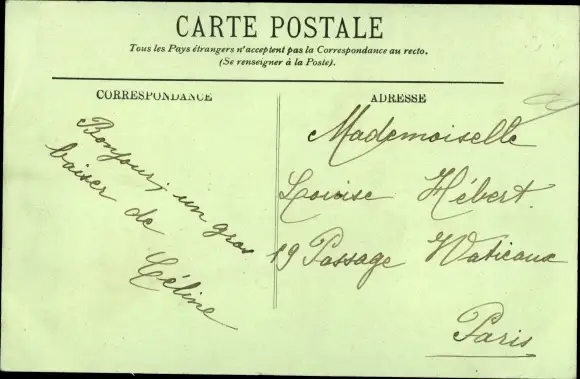 CARTE POSTALE
Tous les Pays étrangers n'acceptent pas la Correspondance au recto.
(Se renseigner à la Poste).
CORRESPONDANCE
Bonjour, un gros
baiser de
Céline
ADRESSE
Mademoiselle
Louise Hébert.
19 Passage Waticaux
Paris